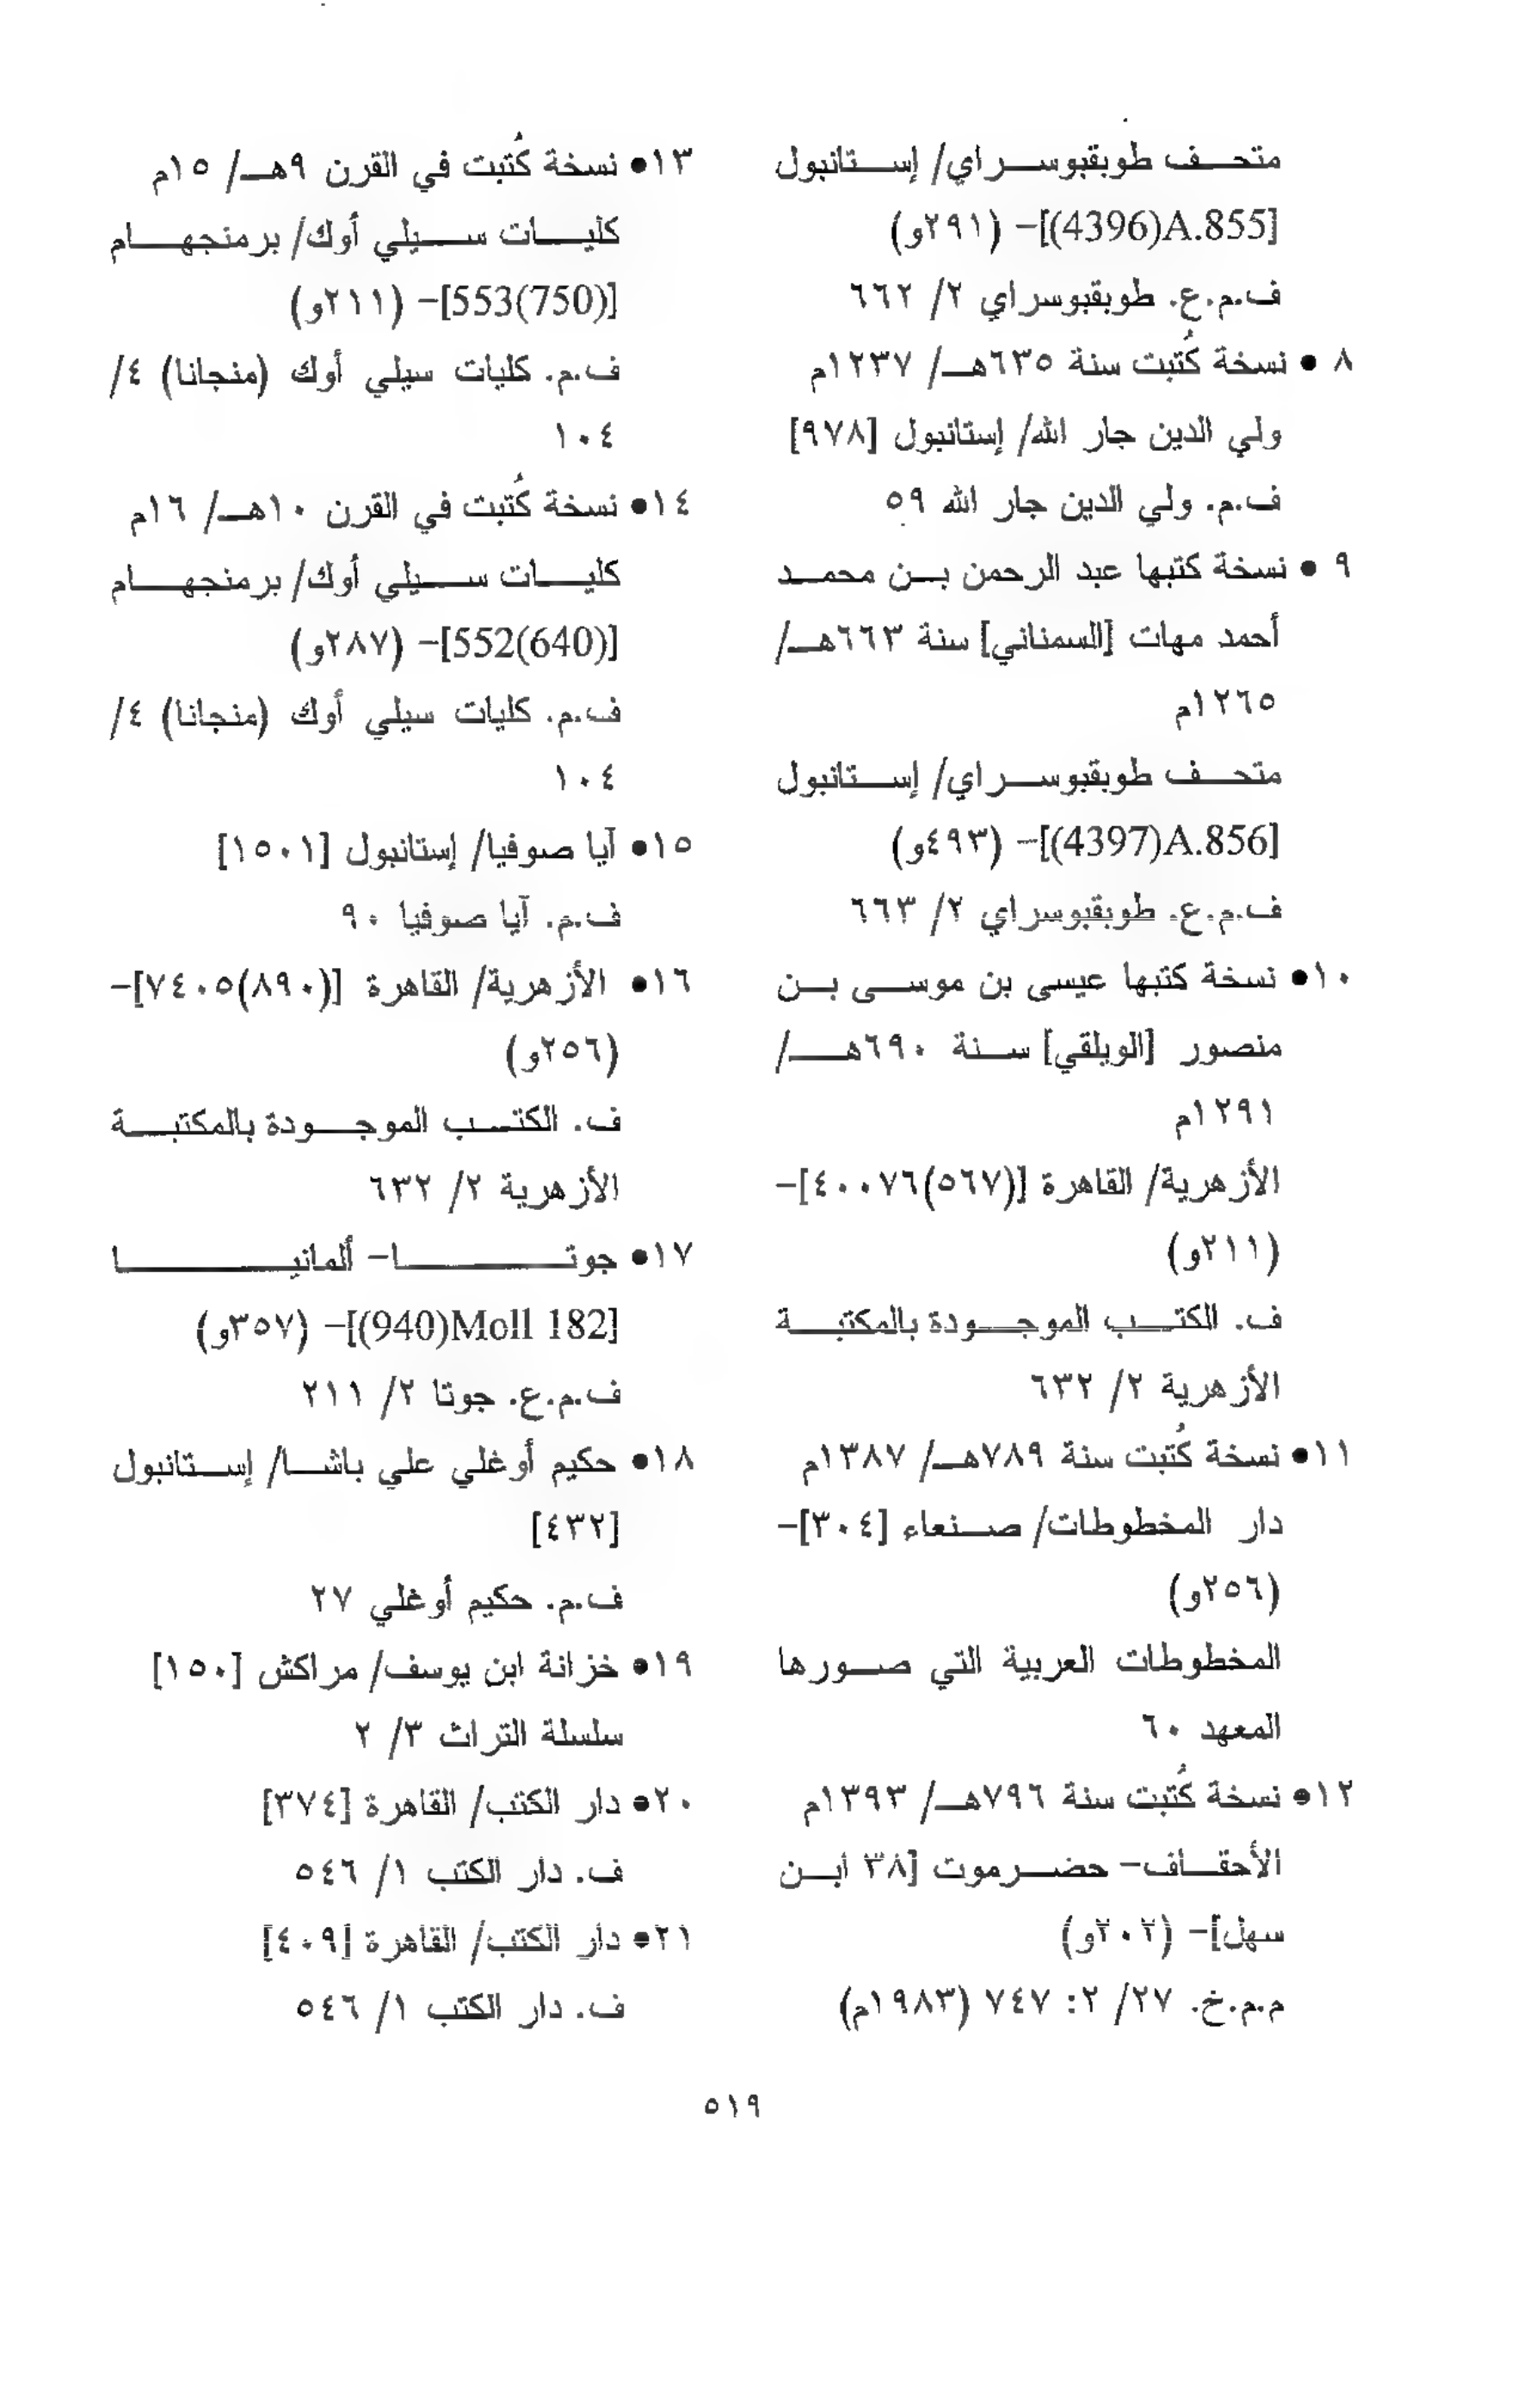 متحف طوبقبوسراي/ إستانبول
[4396)A.855)]- (٢٩١و)
ف.م.ع. طوبقبوسراي ٢/ ٦٦٢
٨ • نسخة كُتبت سنة ٦٣٥هـ/ ١٢٣٧م
ولي الدين جار الله/ إستانبول [٩٧٨]
ف.م. ولي الدين جار الله ٥٩
٩ • نسخة كتبها عبد الرحمن بن محمد
أحمد مهات [السمناني] سنة ٦٦٣هـ/
١٢٦٥م
متحف طوبقبوسراي/ إستانبول
[4397)A.856)]- (٤٩٣و)
ف.م.ع. طوبقبوسراي ٢/ ٦٦٣
١٠• نسخة كتبها عيسى بن موسى بن
منصور [الويلقي] سنة ٦٩٠هـ/
١٢٩١م
الأزهرية/ القاهرة [(٥٦٧)٤٠٠٧٦]-
(٢١١و)
ف. الكتب الموجودة بالمكتبة
الأزهرية ٢/ ٦٣٢
١١• نسخة كُتبت سنة ٧٨٩هـ/ ١٣٨٧م
دار المخطوطات/ صنعاء [٣٠٤]-
(٢٥٦و)
المخطوطات العربية التي صورها
المعهد ٦٠
١٢• نسخة كُتبت سنة ٧٩٦هـ/ ١٣٩٣م
الأحقاف- حضرموت [٣٨ ابن
سهل]- (٢٠٢و)
م.م.خ. ٢٧/ ٢: ٧٤٧ (١٩٨٣م)
١٣• نسخة كُتبت في القرن ٩هـ/ ١٥م
كليات سيلي أوك/ برمنجهام
[553(750)]- (٢١١و)
ف.م. كليات سيلي أوك (منجانا) ٤/
١٠٤
١٤• نسخة كُتبت في القرن ١٠هـ/ ١٦م
كليات سيلي أوك/ برمنجهام
[552(640)]- (٢٨٧و)
ف.م. كليات سيلي أوك (منجانا) ٤/
١٠٤
١٥• آيا صوفيا/ إستانبول [١٥٠١]
ف.م. آيا صوفيا ٩٠
١٦• الأزهرية/ القاهرة [(٨٩٠)٧٤٠٥]-
(٢٥٦و)
ف. الكتب الموجودة بالمكتبة
الأزهرية ٢/ ٦٣٢
١٧• جوتا- ألمانيا
[940)Moll 182)]- (٣٥٧و)
ف.م.ع. جوتا ٢/ ٢١١
١٨• حكيم أوغلي علي باشا/ إستانبول
[٤٣٢]
ف.م. حكيم أوغلي ٢٧
١٩• خزانة ابن يوسف/ مراكش [١٥٠]
سلسلة التراث ٣/ ٢
٢٠• دار الكتب/ القاهرة [٣٧٤]
ف. دار الكتب ١/ ٥٤٦
٢١• دار الكتب/ القاهرة [٤٠٩]
ف. دار الكتب ١/ ٥٤٦
٥١٩